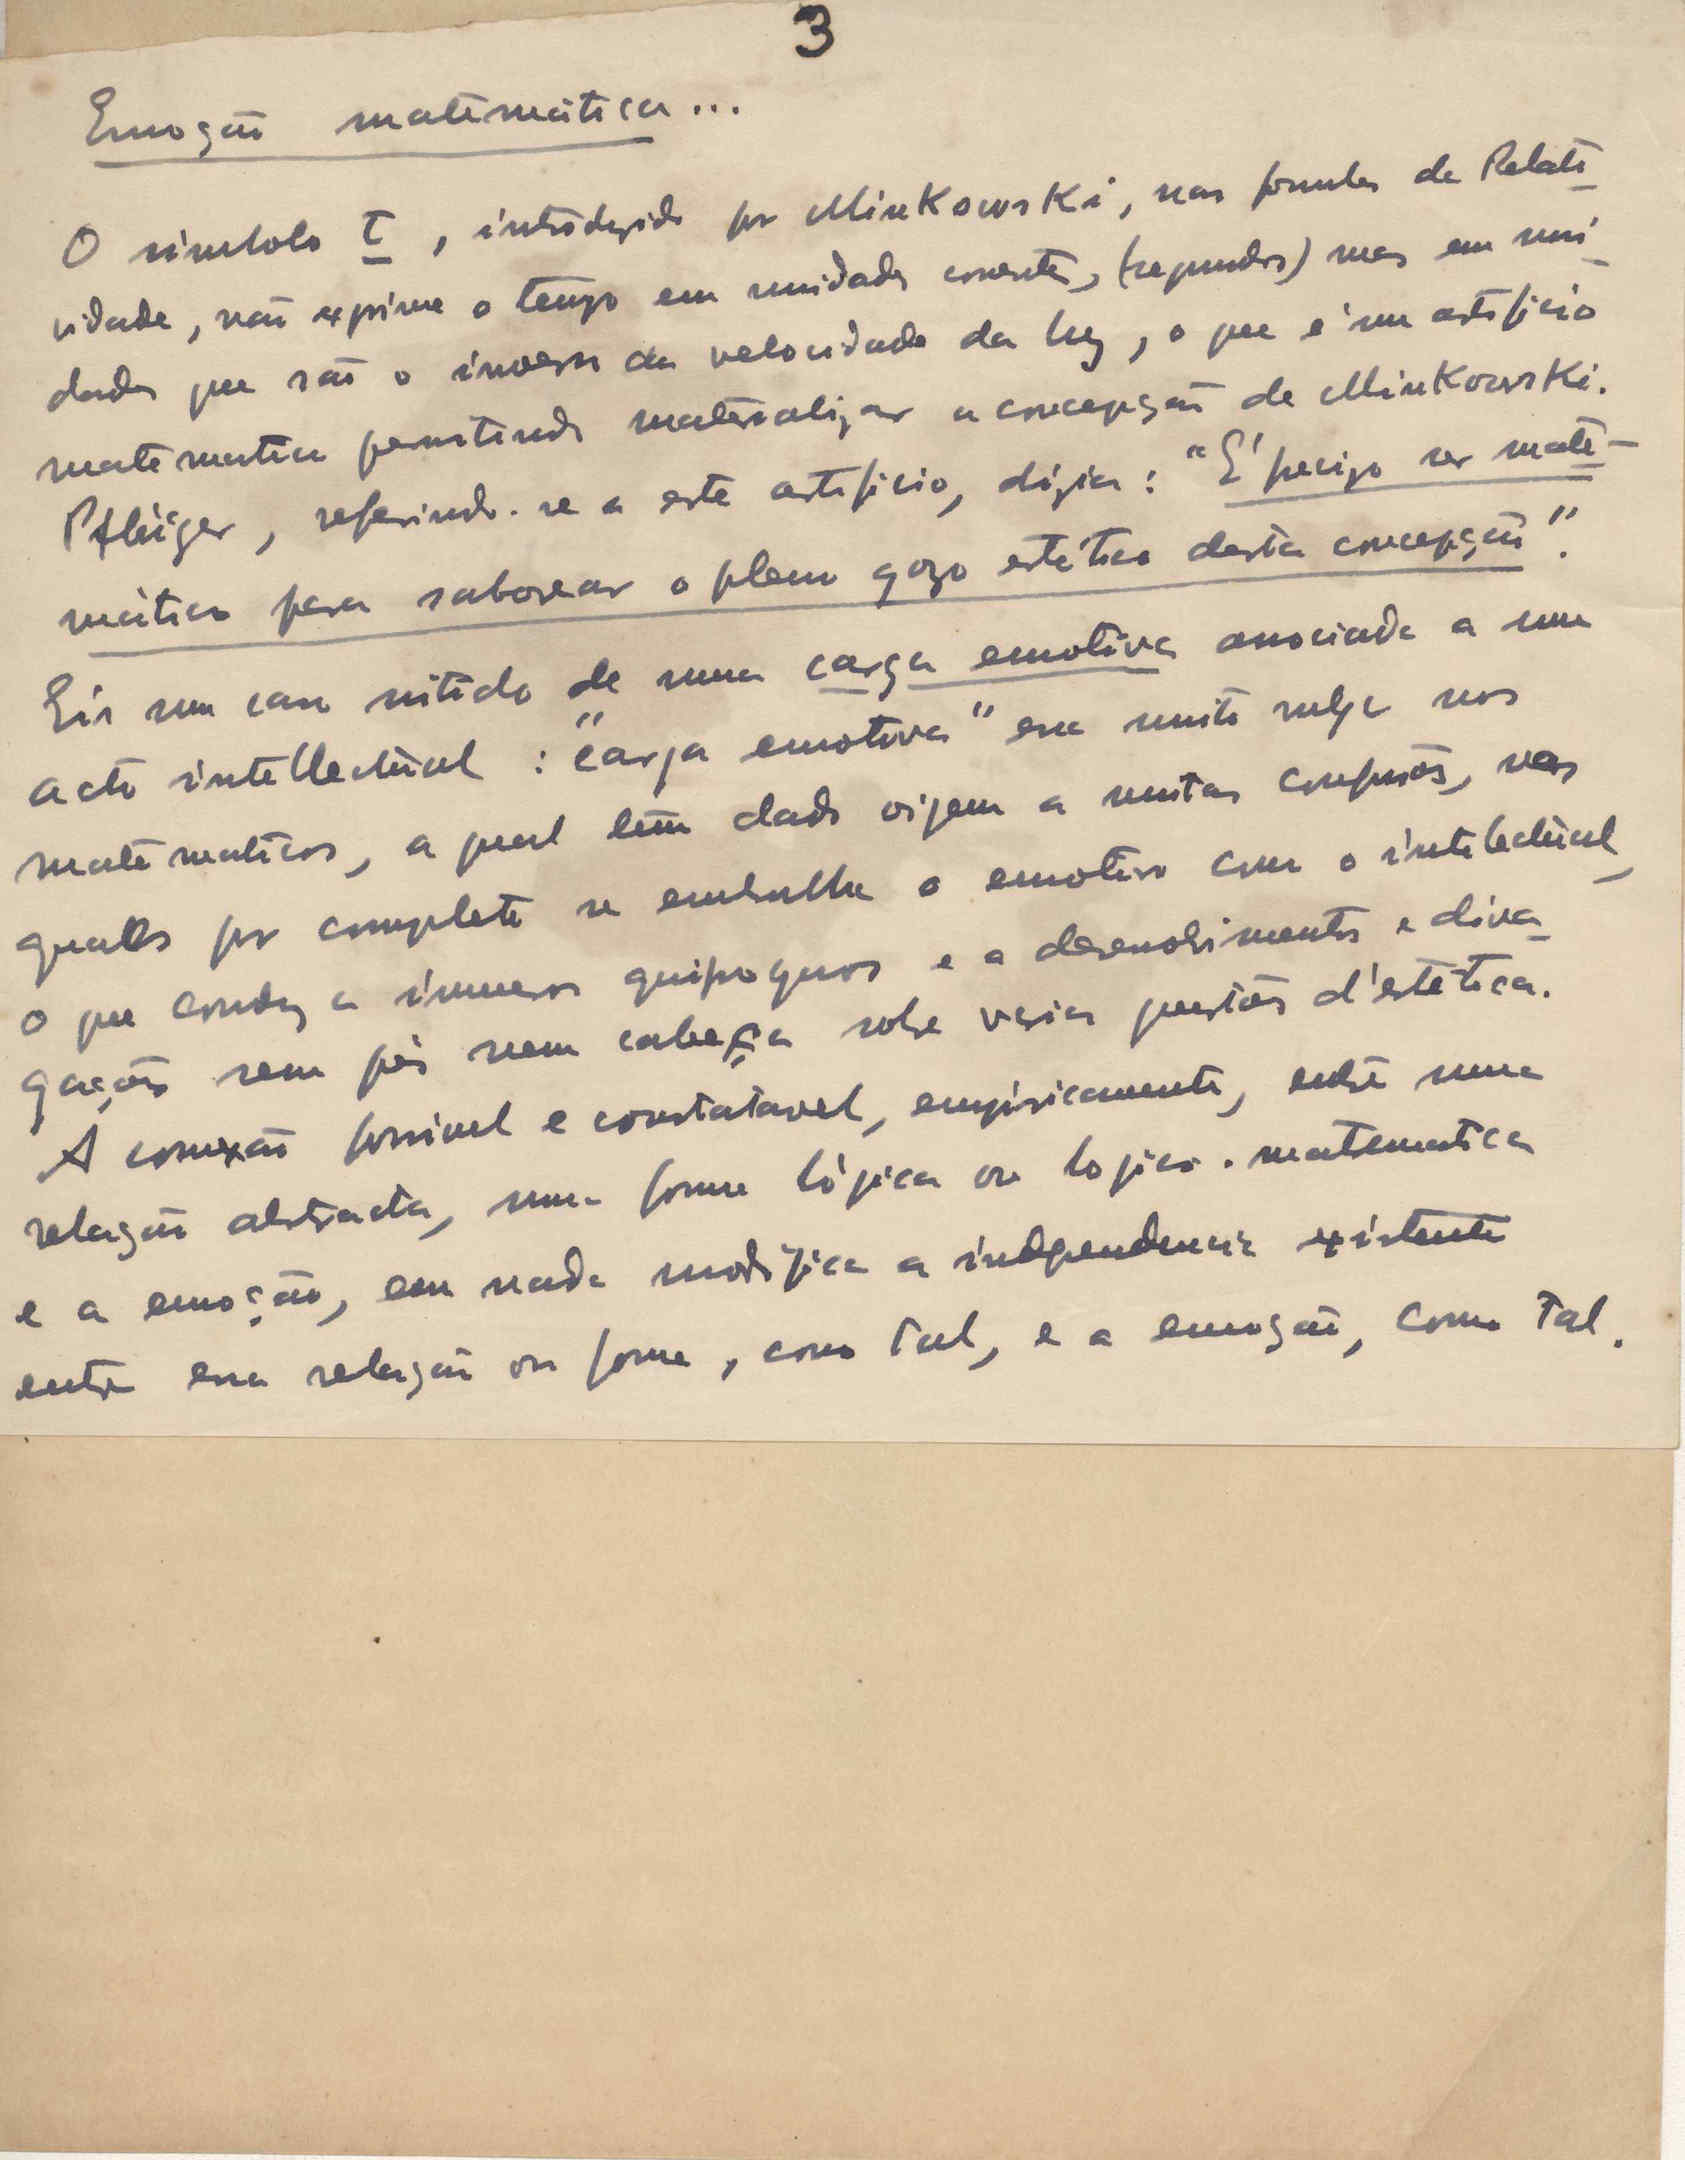 3
Emoção matemática...
O símbolo τ, introduzido por Minkowski, nas formulas da Relati
vidade, não exprime o tempo em unidades correntes, (segundos) mas em uni
dades que são o inverso da velocidade da luz, o que é um artificio
matematico permitindo materializar a concepção de Minkowski.
Pflüger, referindo-se a este artificio, dizia: "É preciso ser mate-
mático para saborear o pleno gozo estético desta concepção".
Eis um caso nitido de uma carga emotiva associada a um
acto intellectual: "carga emotiva" essa muito vulgar nos
matematicos, a qual tem dado origem a muitas confusões, nas
quaes por completo se embrulha o emotivo com o intelectual,
o que conduz a inumeros quiproquos e a desenvolvimentos e diva
gações sem pés nem cabeça sobre varias questões d'estética.
A conexão possivel e constatavel, empiricamente, entre uma
relação abstracta, uma forma lógica ou logico-matematica
e a emoção, em nada modifica a independencia existente
entre essa relação ou forma, como tal, e a emoção, como tal.